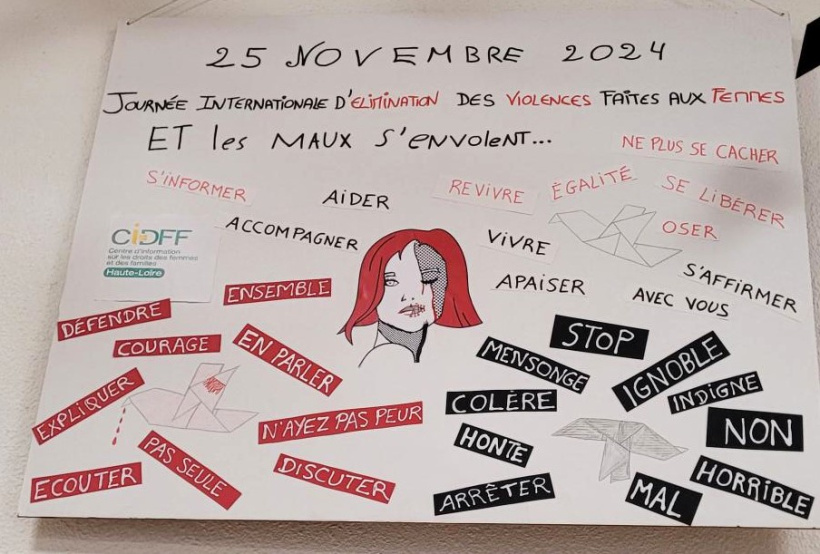 25 NOVEMBRE 2024
JOURNÉE INTERNATIONALE D'ELIMINATION DES VIOLENCES FAITES AUX FEMMES
ET les MAUX S'ENVOLENT...
NE PLUS SE CACHER
S'INFORMER
AIDER
REVIVRE
ÉGALITÉ
SE LIBÉRER
ACCOMPAGNER
VIVRE
OSER
CIDFF
Centre d'information
sur les droits des femmes
et des familles
Haute-Loire
APAISER
S'AFFIRMER
AVEC VOUS
ENSEMBLE
DÉFENDRE
COURAGE
EN PARLER
EXPLIQUER
N'AYEZ PAS PEUR
ECOUTER
PAS SEULE
DISCUTER
STOP
MENSONGE
IGNOBLE
INDIGNE
COLÈRE
NON
HONTE
ARRÊTER
MAL
HORRIBLE